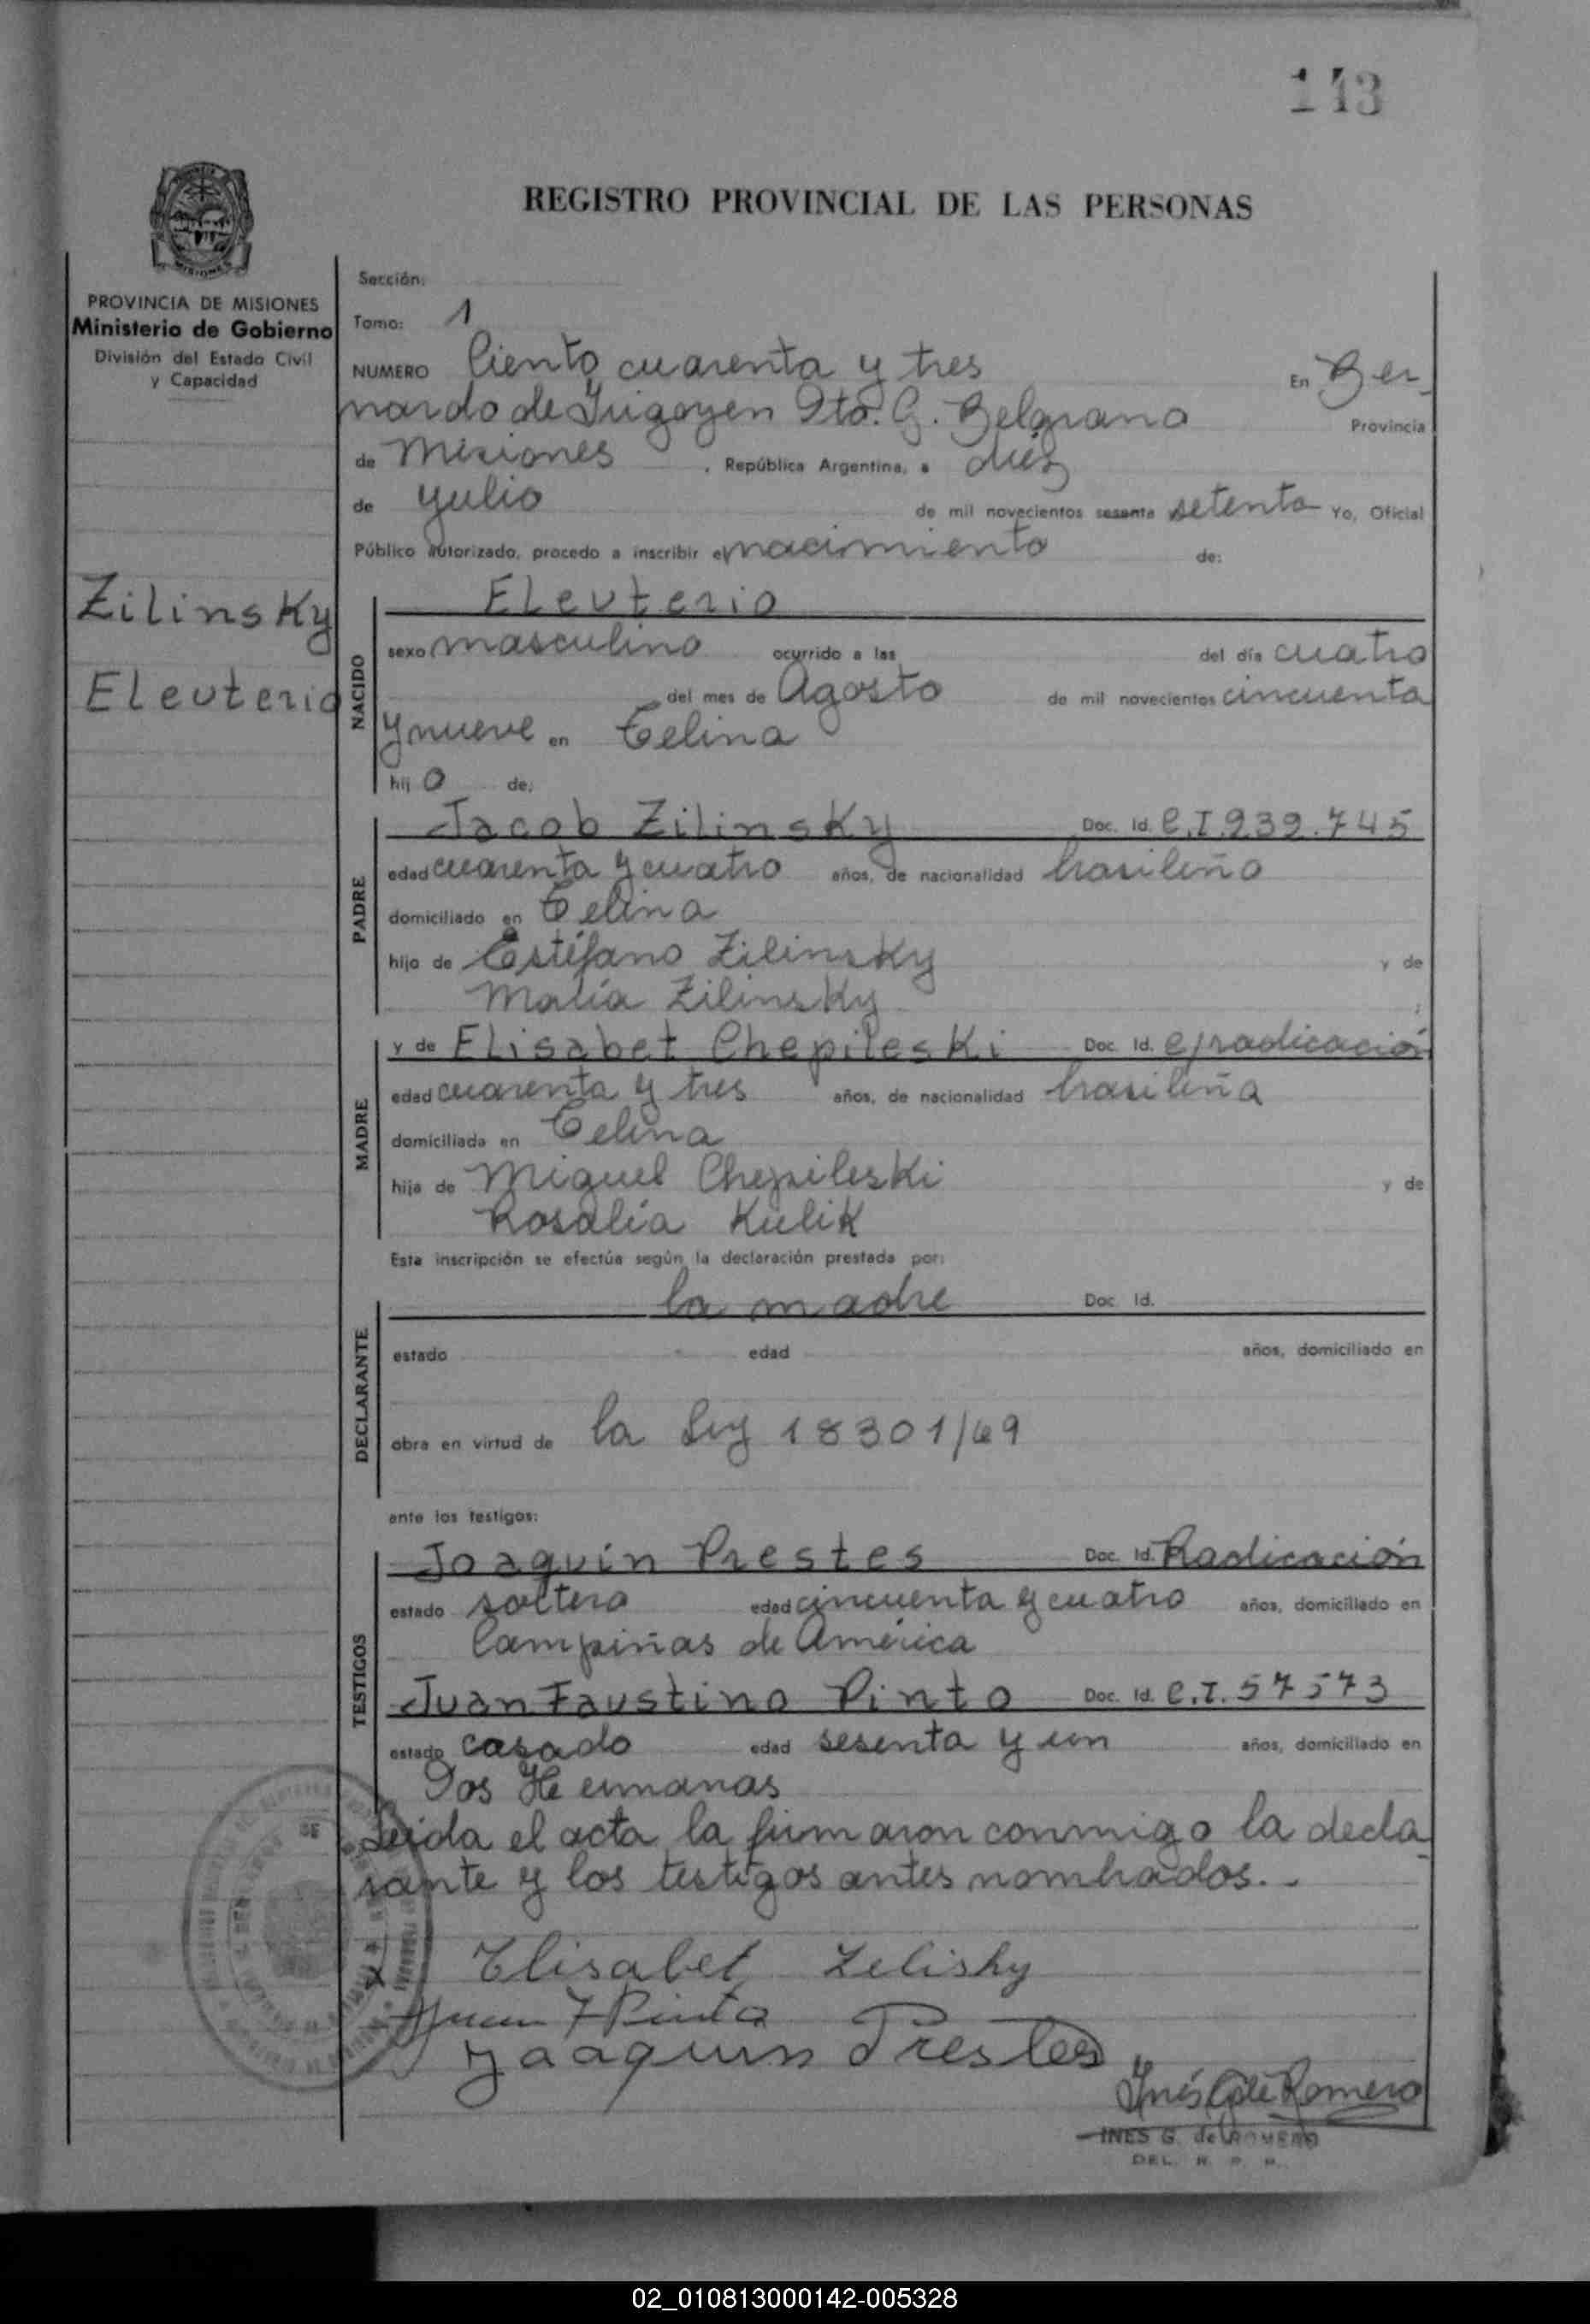 143
REGISTRO PROVINCIAL DE LAS PERSONAS
PROVINCIA DE MISIONES
Ministerio de Gobierno
División del Estado Civil
y Capacidad
Zilinsky
Eleuterio
Sección:
Tomo: 1
NUMERO Ciento cuarenta y tres En Ber
nardo de Irigoyen Dto. G. Belgrano Provincia
de Misiones, República Argentina, a diez
de yulio de mil novecientos sesenta setenta Yo, Oficial
Público autorizado, procedo a inscribir e nacimiento de:
NACIDO
Eleuterio
sexo masculino ocurrido a las del día cuatro
del mes de Agosto de mil novecientos cincuenta
y nueve en Celina
hij o de:
PADRE
Jacob Zilinsky Doc. Id. C.I.939.745
edad cuarenta y cuatro años, de nacionalidad brasileño
domiciliado en Celina
hijo de Estéfano Zilinsky y de
María Zilinsky ;
MADRE
y de Elisabet Chepileski Doc. Id. c/radicación
edad cuarenta y tres años, de nacionalidad brasileña
domiciliada en Celina
hija de Miguel Chepileski y de
Rosalía Kulik
Esta inscripción se efectúa según la declaración prestada por:
DECLARANTE
la madre Doc. Id.
estado edad años, domiciliado en
obra en virtud de la Ley 18301/69
ante los testigos:
TESTIGOS
Joaquín Prestes Doc. Id. Radicación
estado soltero edad cincuenta y cuatro años, domiciliado en
Campiñas de América
Juan Faustino Pinto Doc. Id. C.I. 57573
estado casado edad sesenta y un años, domiciliado en
Dos Hermanas
Leida el acta la firmaron conmigo la decla
rante y los testigos antes nombrados..
Elisabet Zelisky
Juan F Pinto
Joaquin Prestes
Inés G de Romero
INES G. de ROMERO
DEL. R. P. P.
02_010813000142-005328